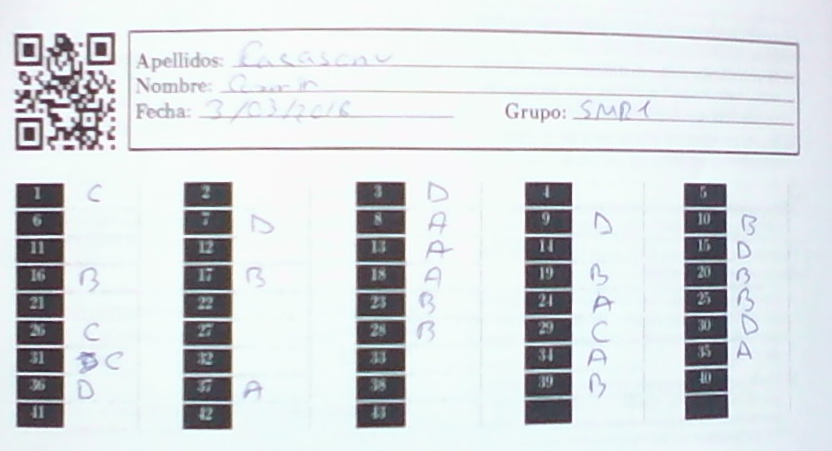 Apellidos: Casascnv
Nombre:
Fecha: 3/03/2016 Grupo: SMR1
1 C 2 3 D 4 5
6 7 D 8 A 9 D 10 B
11 12 13 A 14 15 D
16 B 17 B 18 A 19 B 20 B
21 22 23 B 24 A 25 B
26 C 27 28 B 29 C 30 D
31 C 32 33 34 A 35 A
36 D 37 A 38 39 B 40
41 42 43